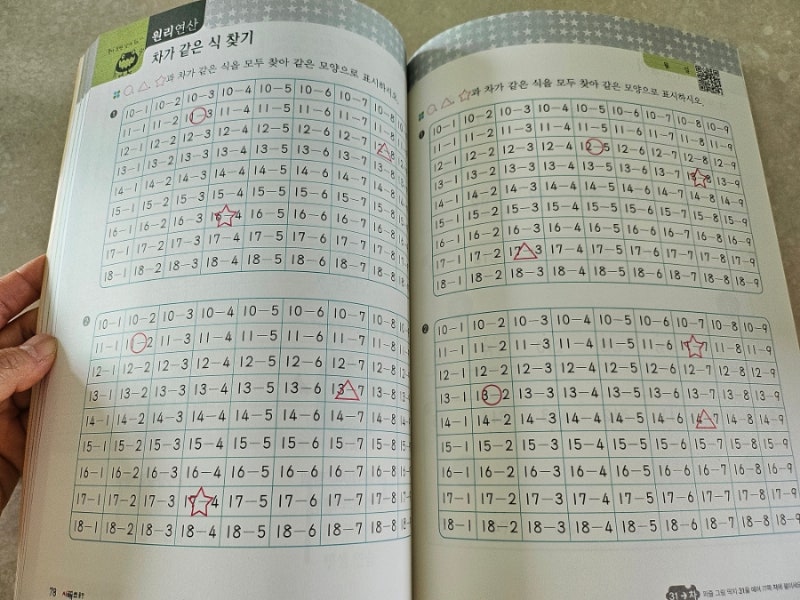 원리연산
차가 같은 식 찾기
과 차가 같은 식을 모두 찾아 같은 모양으로 표시하시오.
1
10-1 10-2 10-3 10-4 10-5 10-6 10-7 10-8
11-1 11-2 11-3 11-4 11-5 11-6 11-7 11-8
12-1 12-2 12-3 12-4 12-5 12-6 12-7 12-8
13-1 13-2 13-3 13-4 13-5 13-6 13-7 13-8
14-1 14-2 14-3 14-4 14-5 14-6 14-7 14-8
15-1 15-2 15-3 15-4 15-5 15-6 15-7 15-8
16-1 16-2 16-3 16-4 16-5 16-6 16-7 16-8
17-1 17-2 17-3 17-4 17-5 17-6 17-7 17-8
18-1 18-2 18-3 18-4 18-5 18-6 18-7 18-8
2
10-1 10-2 10-3 10-4 10-5 10-6 10-7 10-8
11-1 11-2 11-3 11-4 11-5 11-6 11-7 11-8
12-1 12-2 12-3 12-4 12-5 12-6 12-7 12-8
13-1 13-2 13-3 13-4 13-5 13-6 13-7 13-8
14-1 14-2 14-3 14-4 14-5 14-6 14-7 14-8
15-1 15-2 15-3 15-4 15-5 15-6 15-7 15-8
16-1 16-2 16-3 16-4 16-5 16-6 16-7 16-8
17-1 17-2 17-3 17-4 17-5 17-6 17-7 17-8
18-1 18-2 18-3 18-4 18-5 18-6 18-7 18-8
78
월 일
과 차가 같은 식을 모두 찾아 같은 모양으로 표시하시오.
1
10-1 10-2 10-3 10-4 10-5 10-6 10-7 10-8 10-9
11-1 11-2 11-3 11-4 11-5 11-6 11-7 11-8 11-9
12-1 12-2 12-3 12-4 12-5 12-6 12-7 12-8 12-9
13-1 13-2 13-3 13-4 13-5 13-6 13-7 13-8 13-9
14-1 14-2 14-3 14-4 14-5 14-6 14-7 14-8 14-9
15-1 15-2 15-3 15-4 15-5 15-6 15-7 15-8 15-9
16-1 16-2 16-3 16-4 16-5 16-6 16-7 16-8 16-9
17-1 17-2 17-3 17-4 17-5 17-6 17-7 17-8 17-9
18-1 18-2 18-3 18-4 18-5 18-6 18-7 18-8 18-9
2
10-1 10-2 10-3 10-4 10-5 10-6 10-7 10-8 10-9
11-1 11-2 11-3 11-4 11-5 11-6 11-7 11-8 11-9
12-1 12-2 12-3 12-4 12-5 12-6 12-7 12-8 12-9
13-1 13-2 13-3 13-4 13-5 13-6 13-7 13-8 13-9
14-1 14-2 14-3 14-4 14-5 14-6 14-7 14-8 14-9
15-1 15-2 15-3 15-4 15-5 15-6 15-7 15-8 15-9
16-1 16-2 16-3 16-4 16-5 16-6 16-7 16-8 16-9
17-1 17-2 17-3 17-4 17-5 17-6 17-7 17-8 17-9
18-1 18-2 18-3 18-4 18-5 18-6 18-7 18-8 18-9